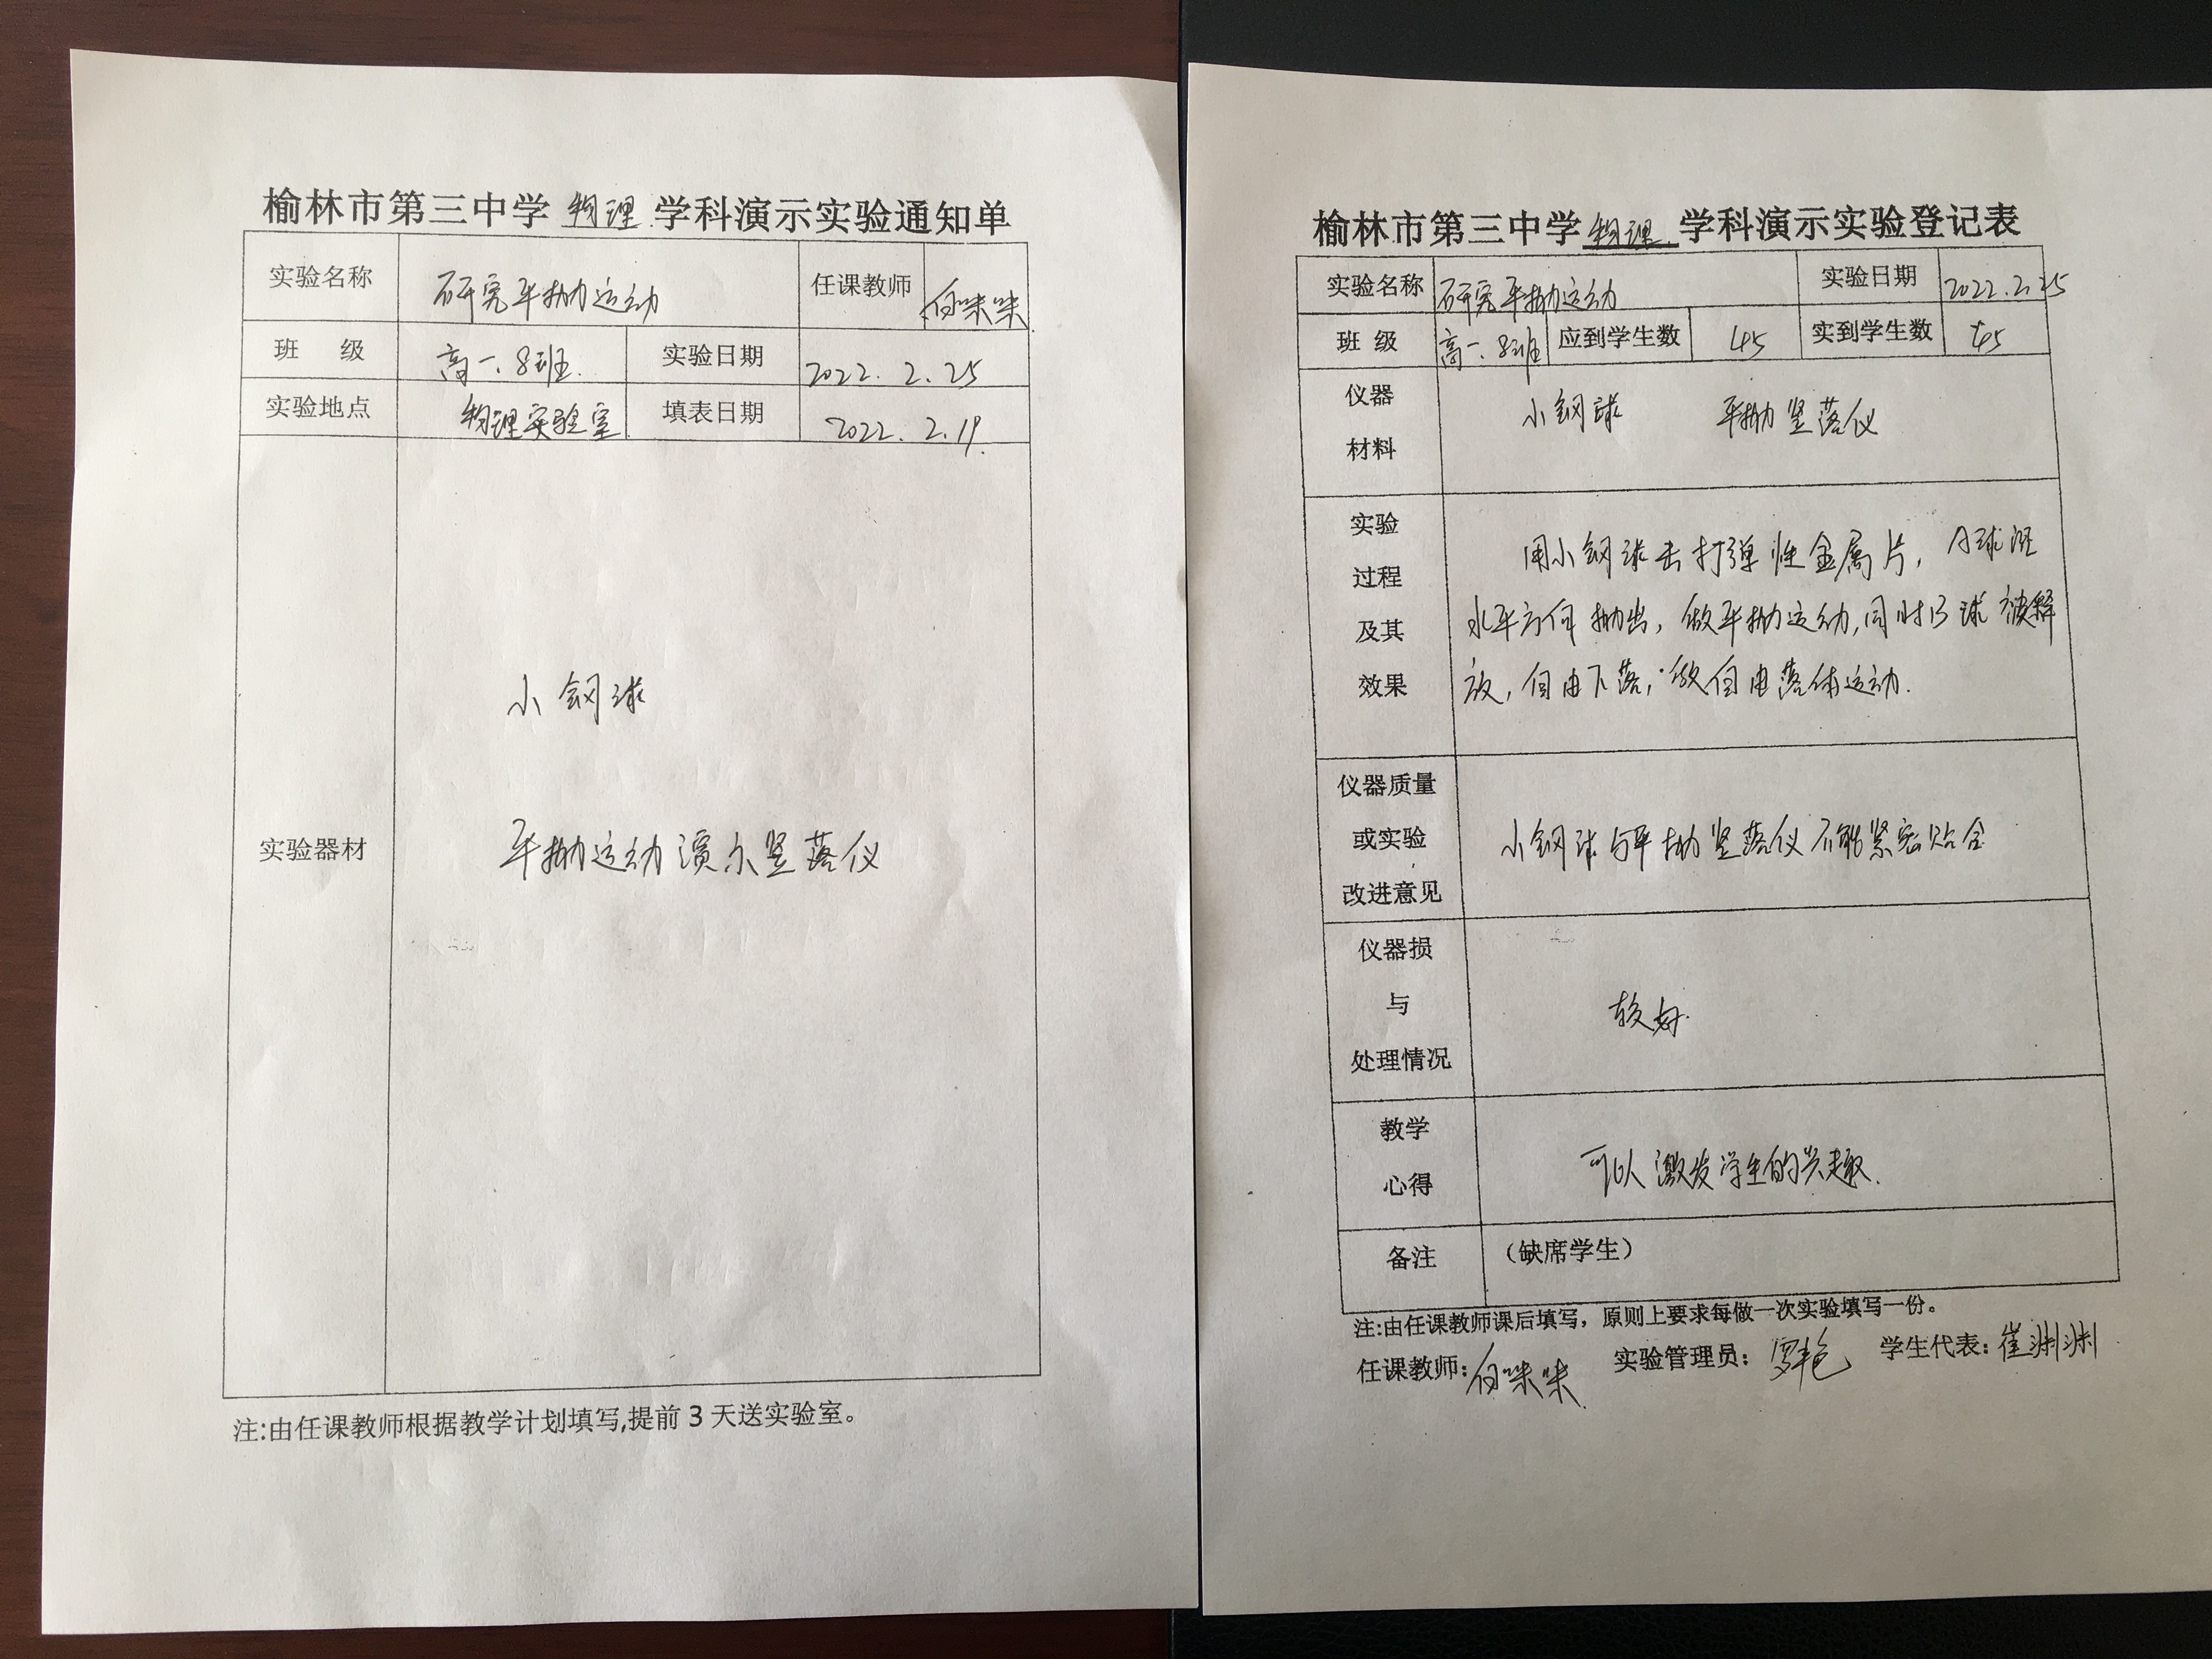 榆林市第三中学 物理 学科演示实验通知单
实验名称 研究平抛运动 任课教师 白咪咪
班 级 高一.8班. 实验日期 2022.2.25
实验地点 物理实验室 填表日期 2022.2.19.
小钢球
实验器材
平抛运动演示竖落仪
注:由任课教师根据教学计划填写,提前3天送实验室。
榆林市第三中学 物理 学科演示实验登记表
实验名称 研究平抛运动 实验日期 2022.2.25
班 级 高一.8班 应到学生数 45 实到学生数 45
仪器
材料
小钢球 平抛竖落仪
实验
过程
及其
效果
用小钢球击打弹性金属片，A球沿
水平方向抛出，做平抛运动,同时B球被释
放，自由下落，做自由落体运动.
仪器质量
或实验
改进意见
小钢球与平抛竖落仪不能紧密贴合
仪器损
与
处理情况
较好.
教学
心得
可以激发学生的兴趣.
备注 （缺席学生）
注:由任课教师课后填写，原则上要求每做一次实验填写一份。
任课教师: 白咪咪 实验管理员: 学生代表: 崔渊渊